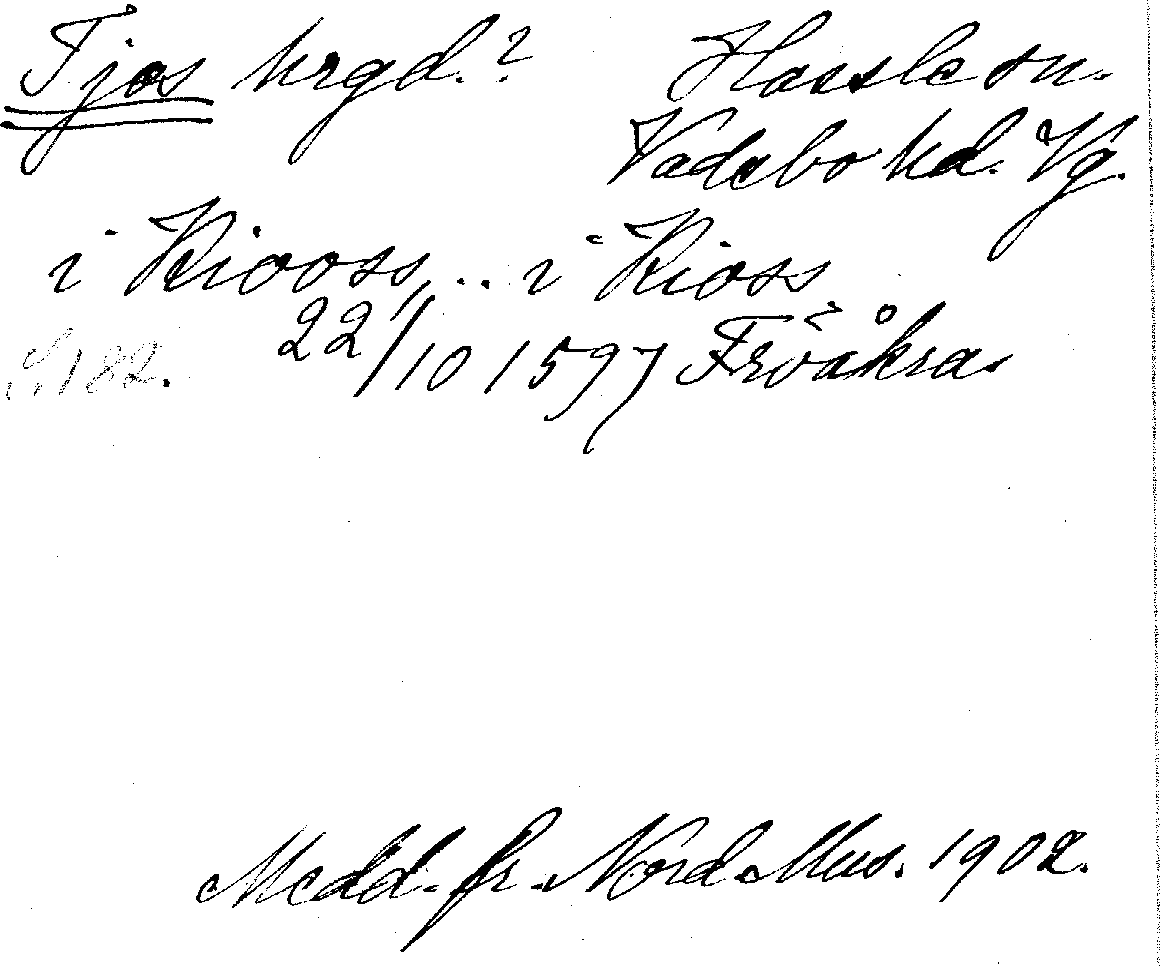 Tjos hrgd.? Hassle sn.
Vadsbo hd. Vg.
i Kiooss, .. i Kioss
S. 182. 22/10 1597 Fröåkra.
Medd. fr. Nord. Mus. 1902.